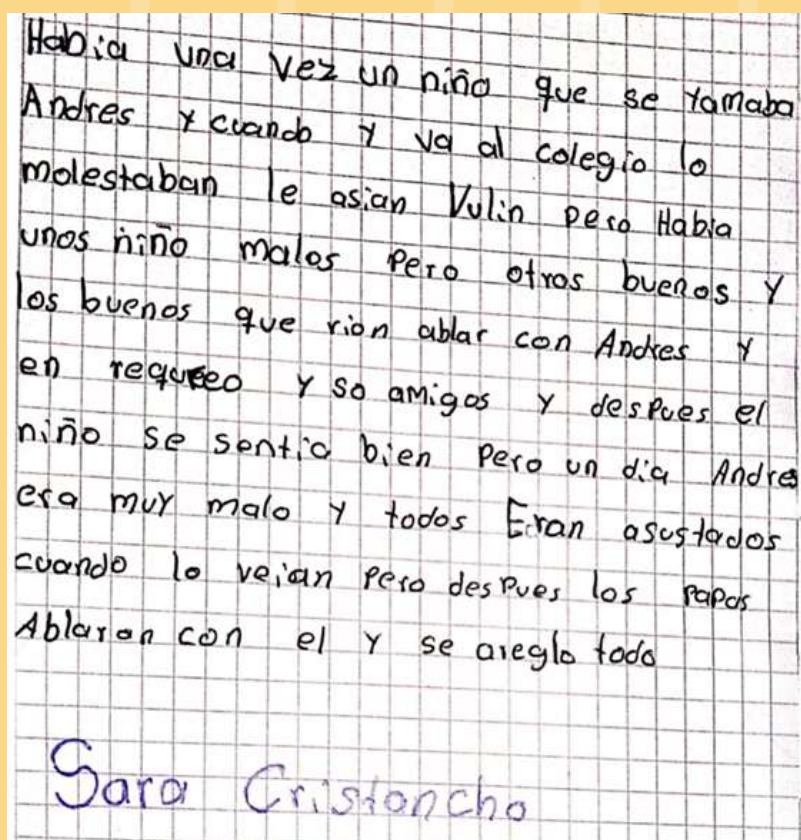 Habia una vez un niño que se yamaba
Andres y cuando y va al colegio lo
molestaban le asian Vulin pero Habia
unos niño malos Pero otros buenos y
los buenos que rion ablar con Andres y
en requreo y so amigos y despues el
niño se sentia bien pero un dia Andres
era muy malo y todos Eran asustados
cuando lo veian pero despues los papas
Ablaron con el y se areglo todo
Sara Cristancho